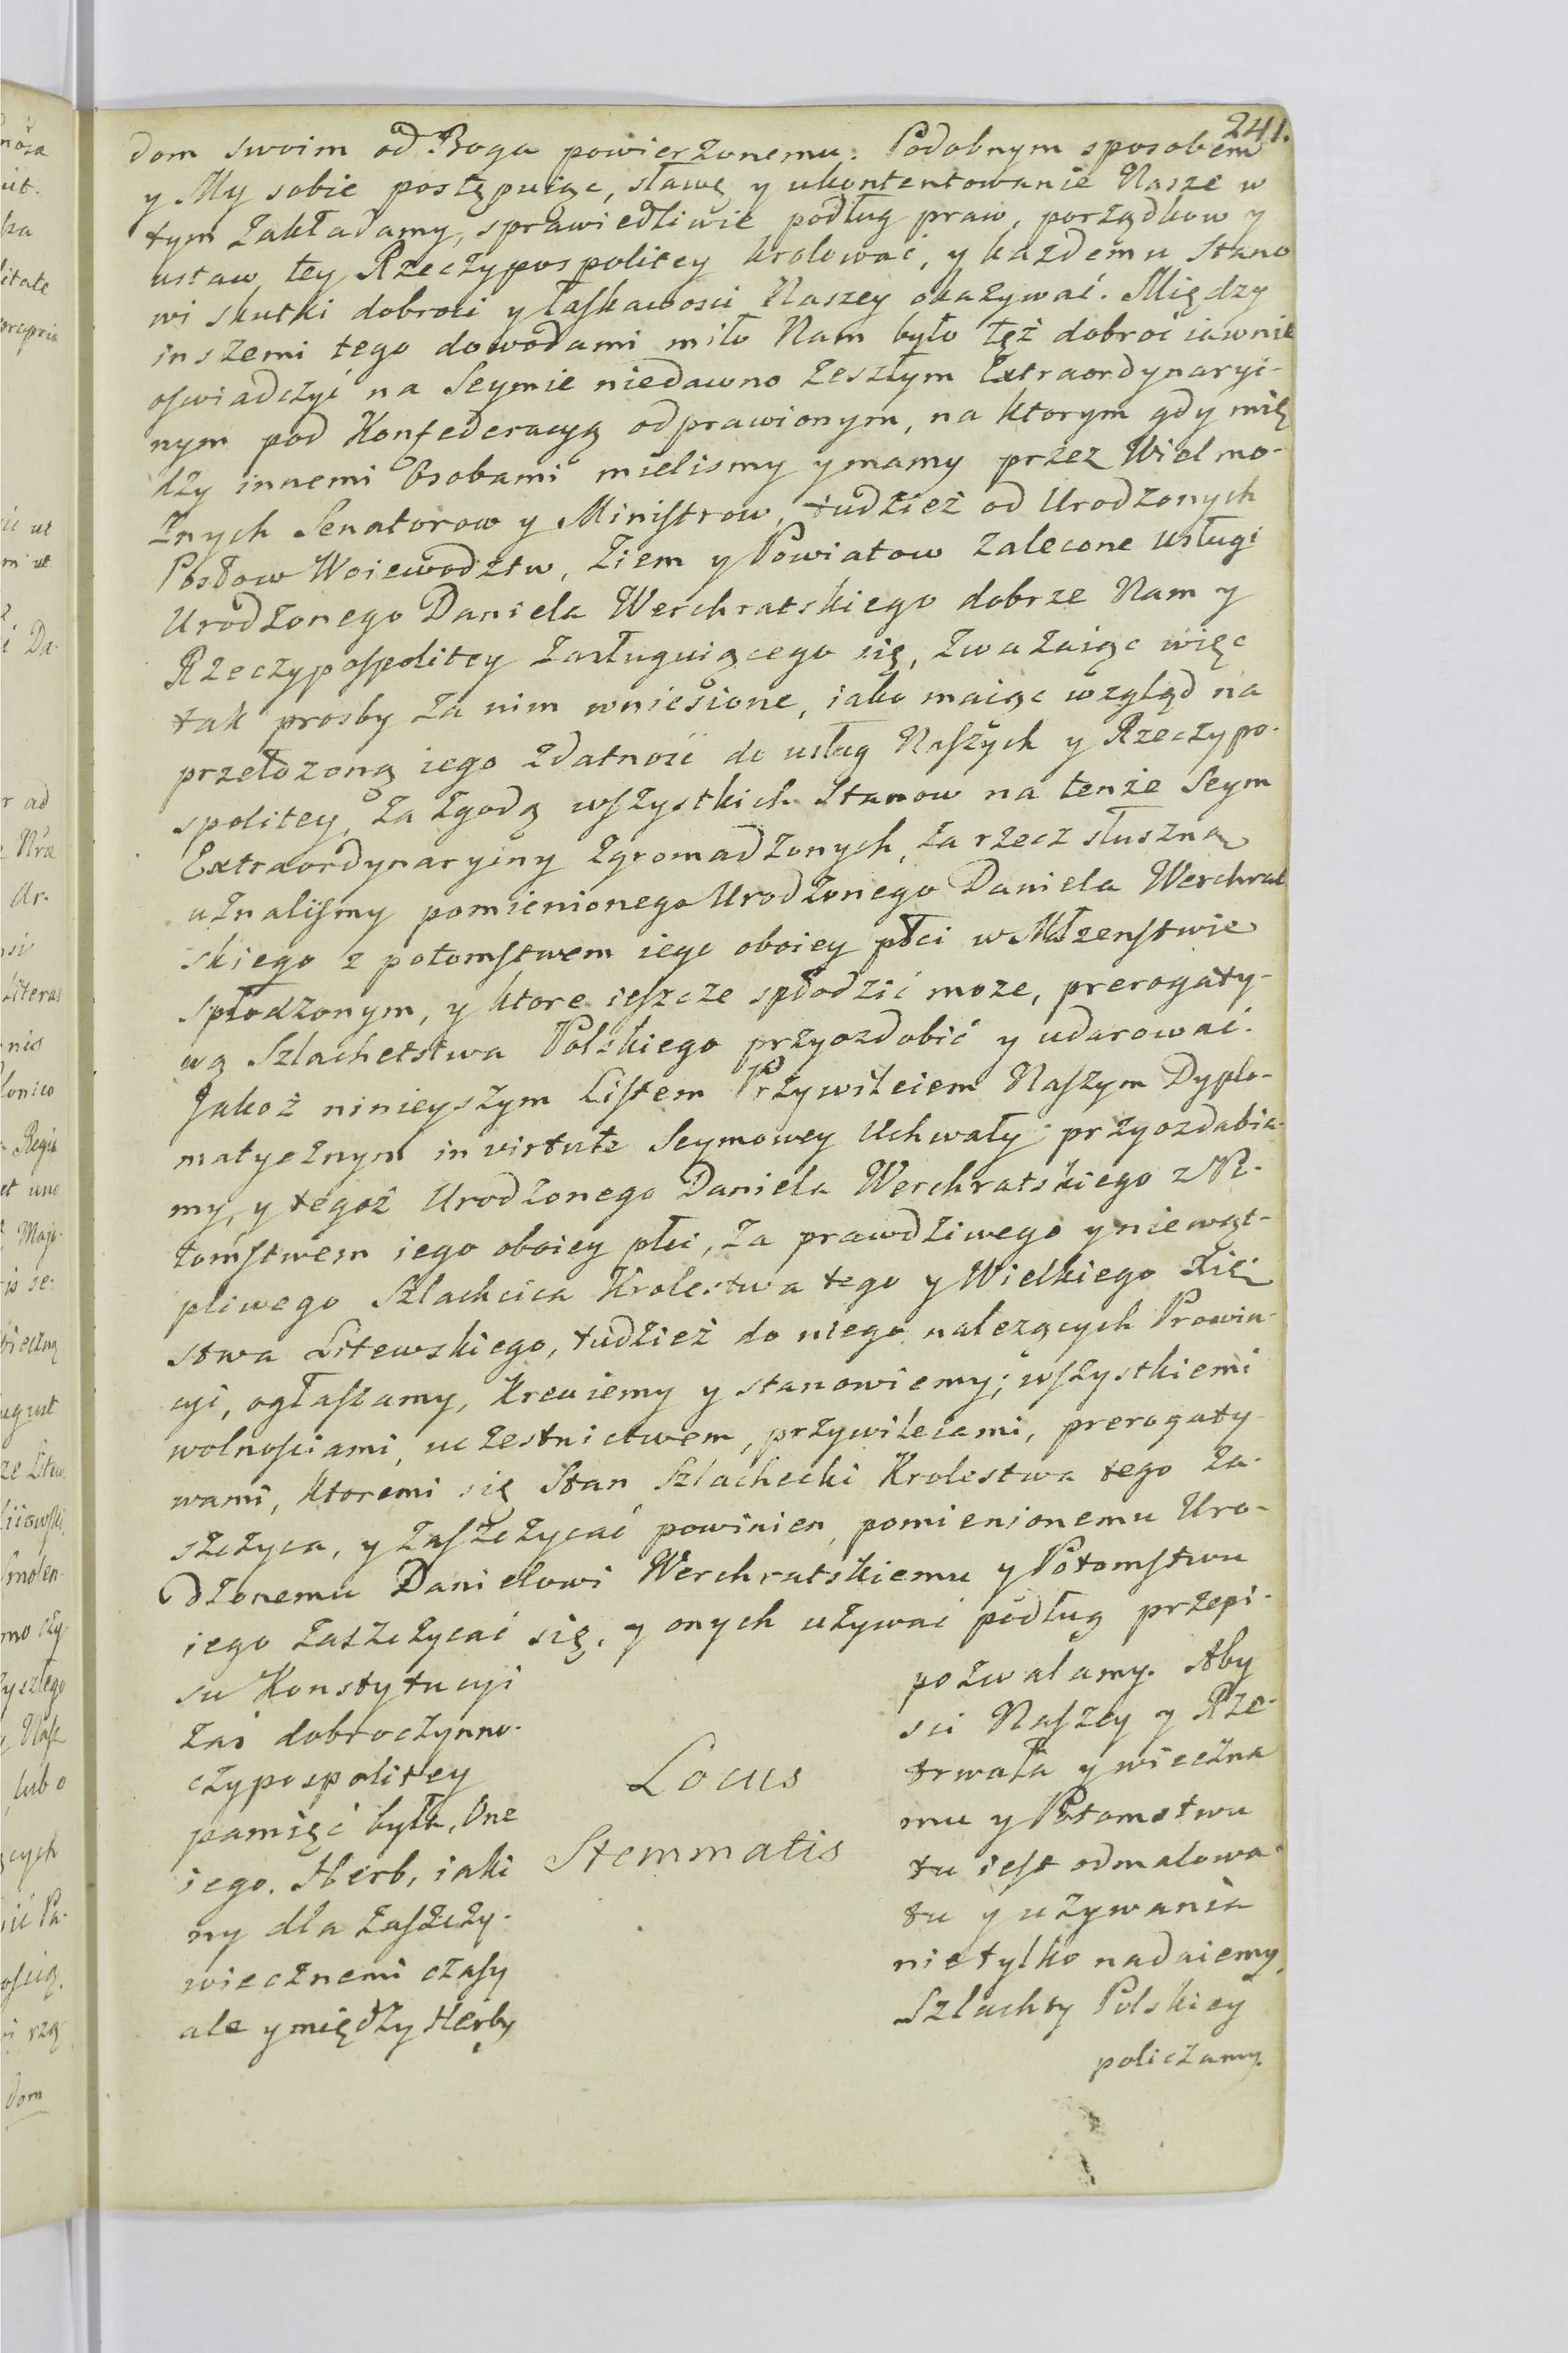 241.
dom swoim od Boga powierzonemu: Podobnym sposobem
y My sobie postępuiąc, sławę y ukontentowanie Nasze w
tym zakładamy, sprawiedliwie podług praw, porządkow y
ustaw tey Rzeczypospolitey krolować, y każdemu Stano
wi skutki dobroci y łaskawosci Naszey okazywać. Między
inszemi tego dowodami miło Nam było tęż dobroć iawnie
oswiadczyć na Seymie niedawno zeszłym Extraordynaryi-
nym pod Konfederacyą odprawionym, na ktorym gdy mię
dzy innemi Osobami mielismy y mamy przez Wielmo-
żnych Senatorow y Ministrow, tudzież od Urodzonych
Posłow Woiewodztw, Ziem y Powiatow zalecone usługi
Urodzonego Daniela Werchratskiego dobrze Nam y
Rzeczypospolitey zasługuiącego się, zważaiąc więc
tak prosby za nim wniesione, iako maiąc wzgląd na
przełożoną iego zdatność do usług Naszych y Rzeczypo-
spolitey, za zgodą wszystkich Stanow na tenże Seym
Extraordynaryiny zgromadzonych, za rzecz słuszną
uznalismy pomienionego Urodzonego Daniela Werchrat
skiego z potomstwem iego oboiey płci w Małżenstwie
spłodzonym, y ktore ieszcze spłodzić moze, prerogaty-
wą Szlachetstwa Polskiego przyozdobić y udarować.
Jakoż ninieyszym Listem Przywileiem Naszym Dyplo-
matycznym in virtute Seymowey Uchwały przyozdabia-
my, y tegoż Urodzonego Daniela Werchratskiego z Po-
tomstwem iego oboiey płci, za prawdziwego y niewąt-
pliwego Szlachcica Krolestwa tego y Wielkiego Xię
stwa Litewskiego, tudzież do niego należących Prowin-
cyi, ogłaszamy, kreuiemy y stanowiemy; wszystkiemi
wolnościami, uczestnictwem, przywileiami, prerogaty-
wami, ktoremi się Stan Szlachecki Krolestwa tego za-
szczyca, y zaszczycać powinien, pomienionemu Uro-
dzonemu Danielowi Werchratskiemu y Potomstwu
iego zaszczycać się, y onych używać podług przepi-
su Konstytucyi pozwalamy. Aby
zaś dobroczynno- sci Naszey y Rze-
czypospolitey trwała y wieczna
pamięć była, One mu y Potomstwu
iego. Herb, iaki tu iest odmalowa-
ny dla zaszczy- tu y używania
wiecznemi czasy nietylko nadaiemy,
ale y między Herby Szlachty Polskiey
policzamy.
Locus
Stemmatis